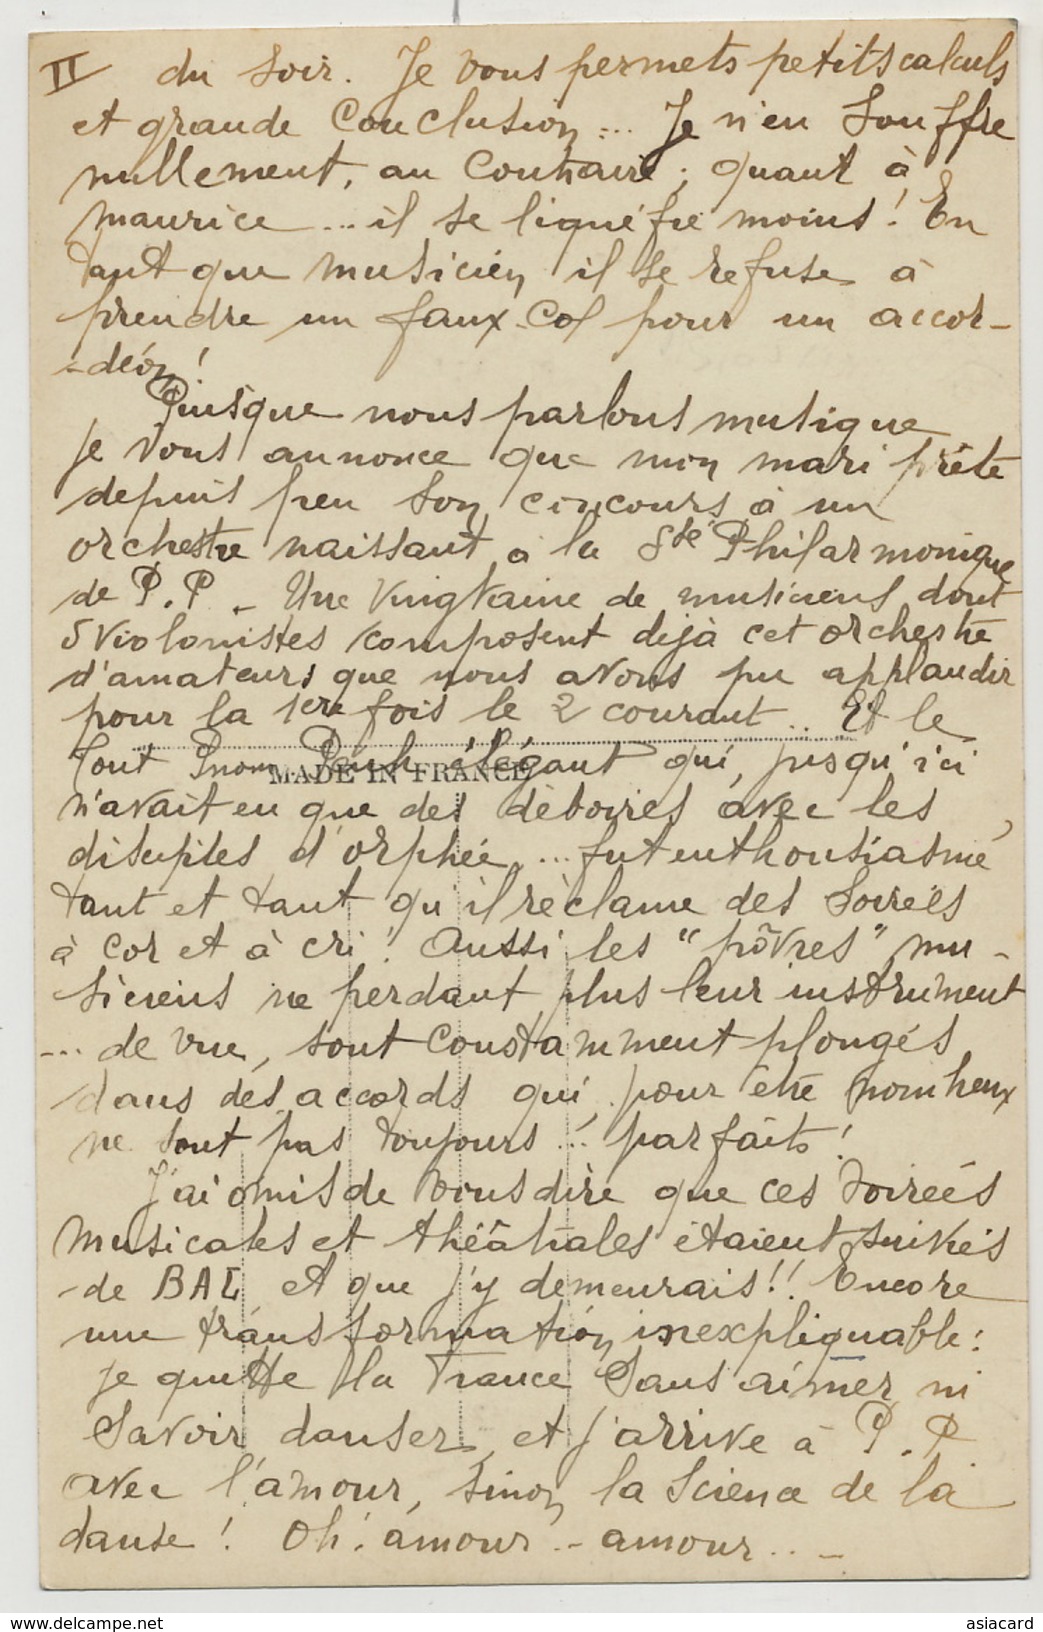 II du soir. Je vous permets petits calculs
et grande Conclusion... Je n'en Souffre
nullement, au Contraire; quant à
maurice ... il se liquéfie moins! En
tant que musicien il se refuse à
prendre un faux-Col pour un accor-
-déon!
Puisque nous parlons musique
je vous annonce que mon mari prête
depuis peu son concours à un
orchestre naissant à la Sté Philarmonique
de P.P. - Une vingtaine de musiciens dont
5 violonistes composent déjà cet orchestre
d'amateurs que nous avons pu applaudir
pour la 1ere fois le 2 courant.. Et le
Tout Pnom-Penh élégant qui, jusqu'ici
MADE IN FRANCE
n'avait eu que des déboires avec les
disciples d'orphée,... fut enthousiasmé,
tant et tant qu'il réclame des Soirées
à cor et à cri! Aussi les "pôvres" mu-
siciens ne perdant plus leur instrument
... de vue, sont constamment plongés
dans des accords qui, pour être nombreux
ne sont pas toujours... parfaits!
J'ai omis de vous dire que ces soirées
musicales et théâtrales étaient suivies
-de BAL et que j'y demeurais!! Encore
une transformation inexpliquable:
je quitte la France Sans aimer ni
Savoir danser, et j'arrive à P.P
avec l'amour, sinon la Science de la
danse! Oh! amour.. amour...
asiacard